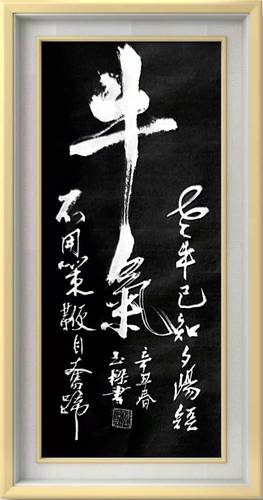 牛氣
老牛已知夕陽短
不用策鞭自奮蹄
辛丑春
書